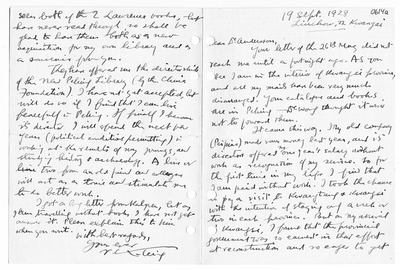 19 Sept. 1929
Linchow, N. Kwangsi
Dear Dr. Anderson,
Your letter of the 26th May did not
reach me until a fortnight ago. As you
see I am in the interior of Kwangsi province,
and my mails have been very much
disarranged. Your catalogue and books
are in Peking thought it wise
not to forward them.
It came this way. My old company
made some money last year, and it's
directors offered one year's salary without
work as recognition of my services. So for
the first time in my life I find that
I am paid without work. I took the chance
to pay a visit to Kwangtung & Kwangsi
with the intention of staying only a week or
two in each province. But on my arrival
in Kwangsi, I found that the provincial
government was so earnest in their effort
at reconstruction and so eager to get
seen both of the 2 Lawrence books, but
has never read them so shall be
glad to have them both as a new
acquisition for my own library and as
a souvenir from you.
They have offered me the directorship
of the New Peking Library (by the China
Foundation). I have not yet accepted, but
will do so if I find that I can live
peacefully in Peking. If I
I will spend the next few
years (political conditions permitting) in
working at the results of my journey, and
studying history & archaeology. As this or
those two from an old friend and colleague
will act as a tonic and stimulate me
to do better work.
I got a long letter from Karlgren, but as
I am travelling without books, I have not yet
answered it. Please explain this to him
when you write.
With best regards,
Yours ever